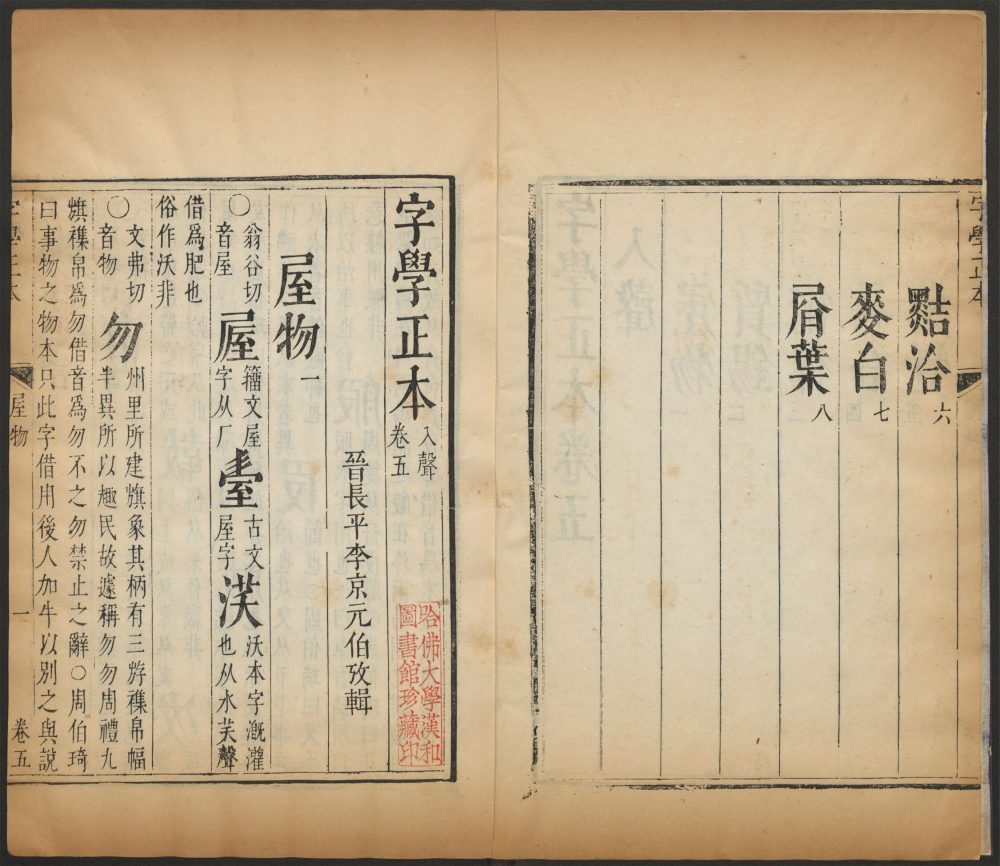 字學正本
黠洽六
麥白七
屑葉八
字學正本入聲卷五
晉長平李京元伯攷輯
哈佛大學漢和圖書館珍藏印
屋物一
○翁谷切音屋
屋籒文屋字从厂
臺古文屋字
渶沃本字漑灌也从水芺聲
借爲肥也俗作沃非
○文弗切音物
勿州里所建旗象其柄有三斿襍帛幅半異所以趣民故遽稱勿勿周禮九
旗襍帛爲勿借音爲勿不之勿禁止之辭○周伯琦
曰事物之物本只此字借用後人加牛以別之與說
字學正本
屋物
一
卷五